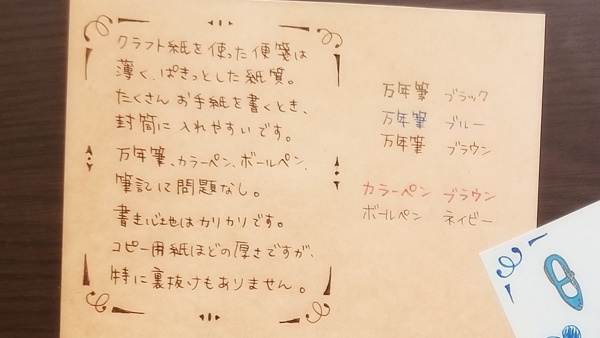 クラフト紙を使った便箋は
薄く、ぱきっとした紙質。
たくさんお手紙を書くとき、
封筒に入れやすいです。
万年筆、カラーペン、ボールペン、
筆記に問題なし。
書き心地はカリカリです。
コピー用紙ほどの厚さですが、
特に裏抜けもありません。
万年筆 ブラック
万年筆 ブルー
万年筆 ブラウン
カラーペン ブラウン
ボールペン ネイビー